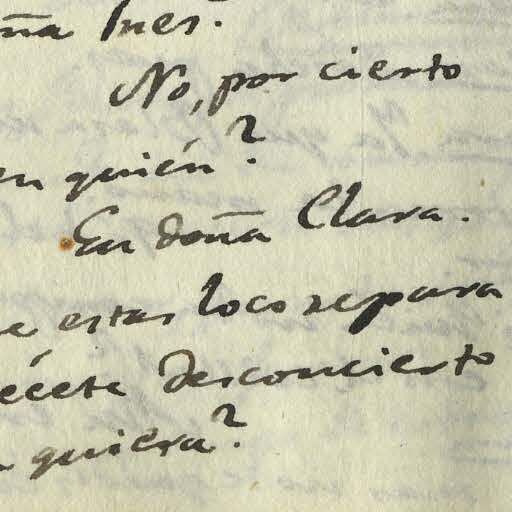 ña Ines.
No, por cierto
en quién?
En doña Clara.
e estas loco repara
écete desconcierto
quiera?